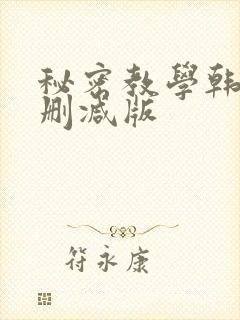 秘密教學韩
删减版
符永康